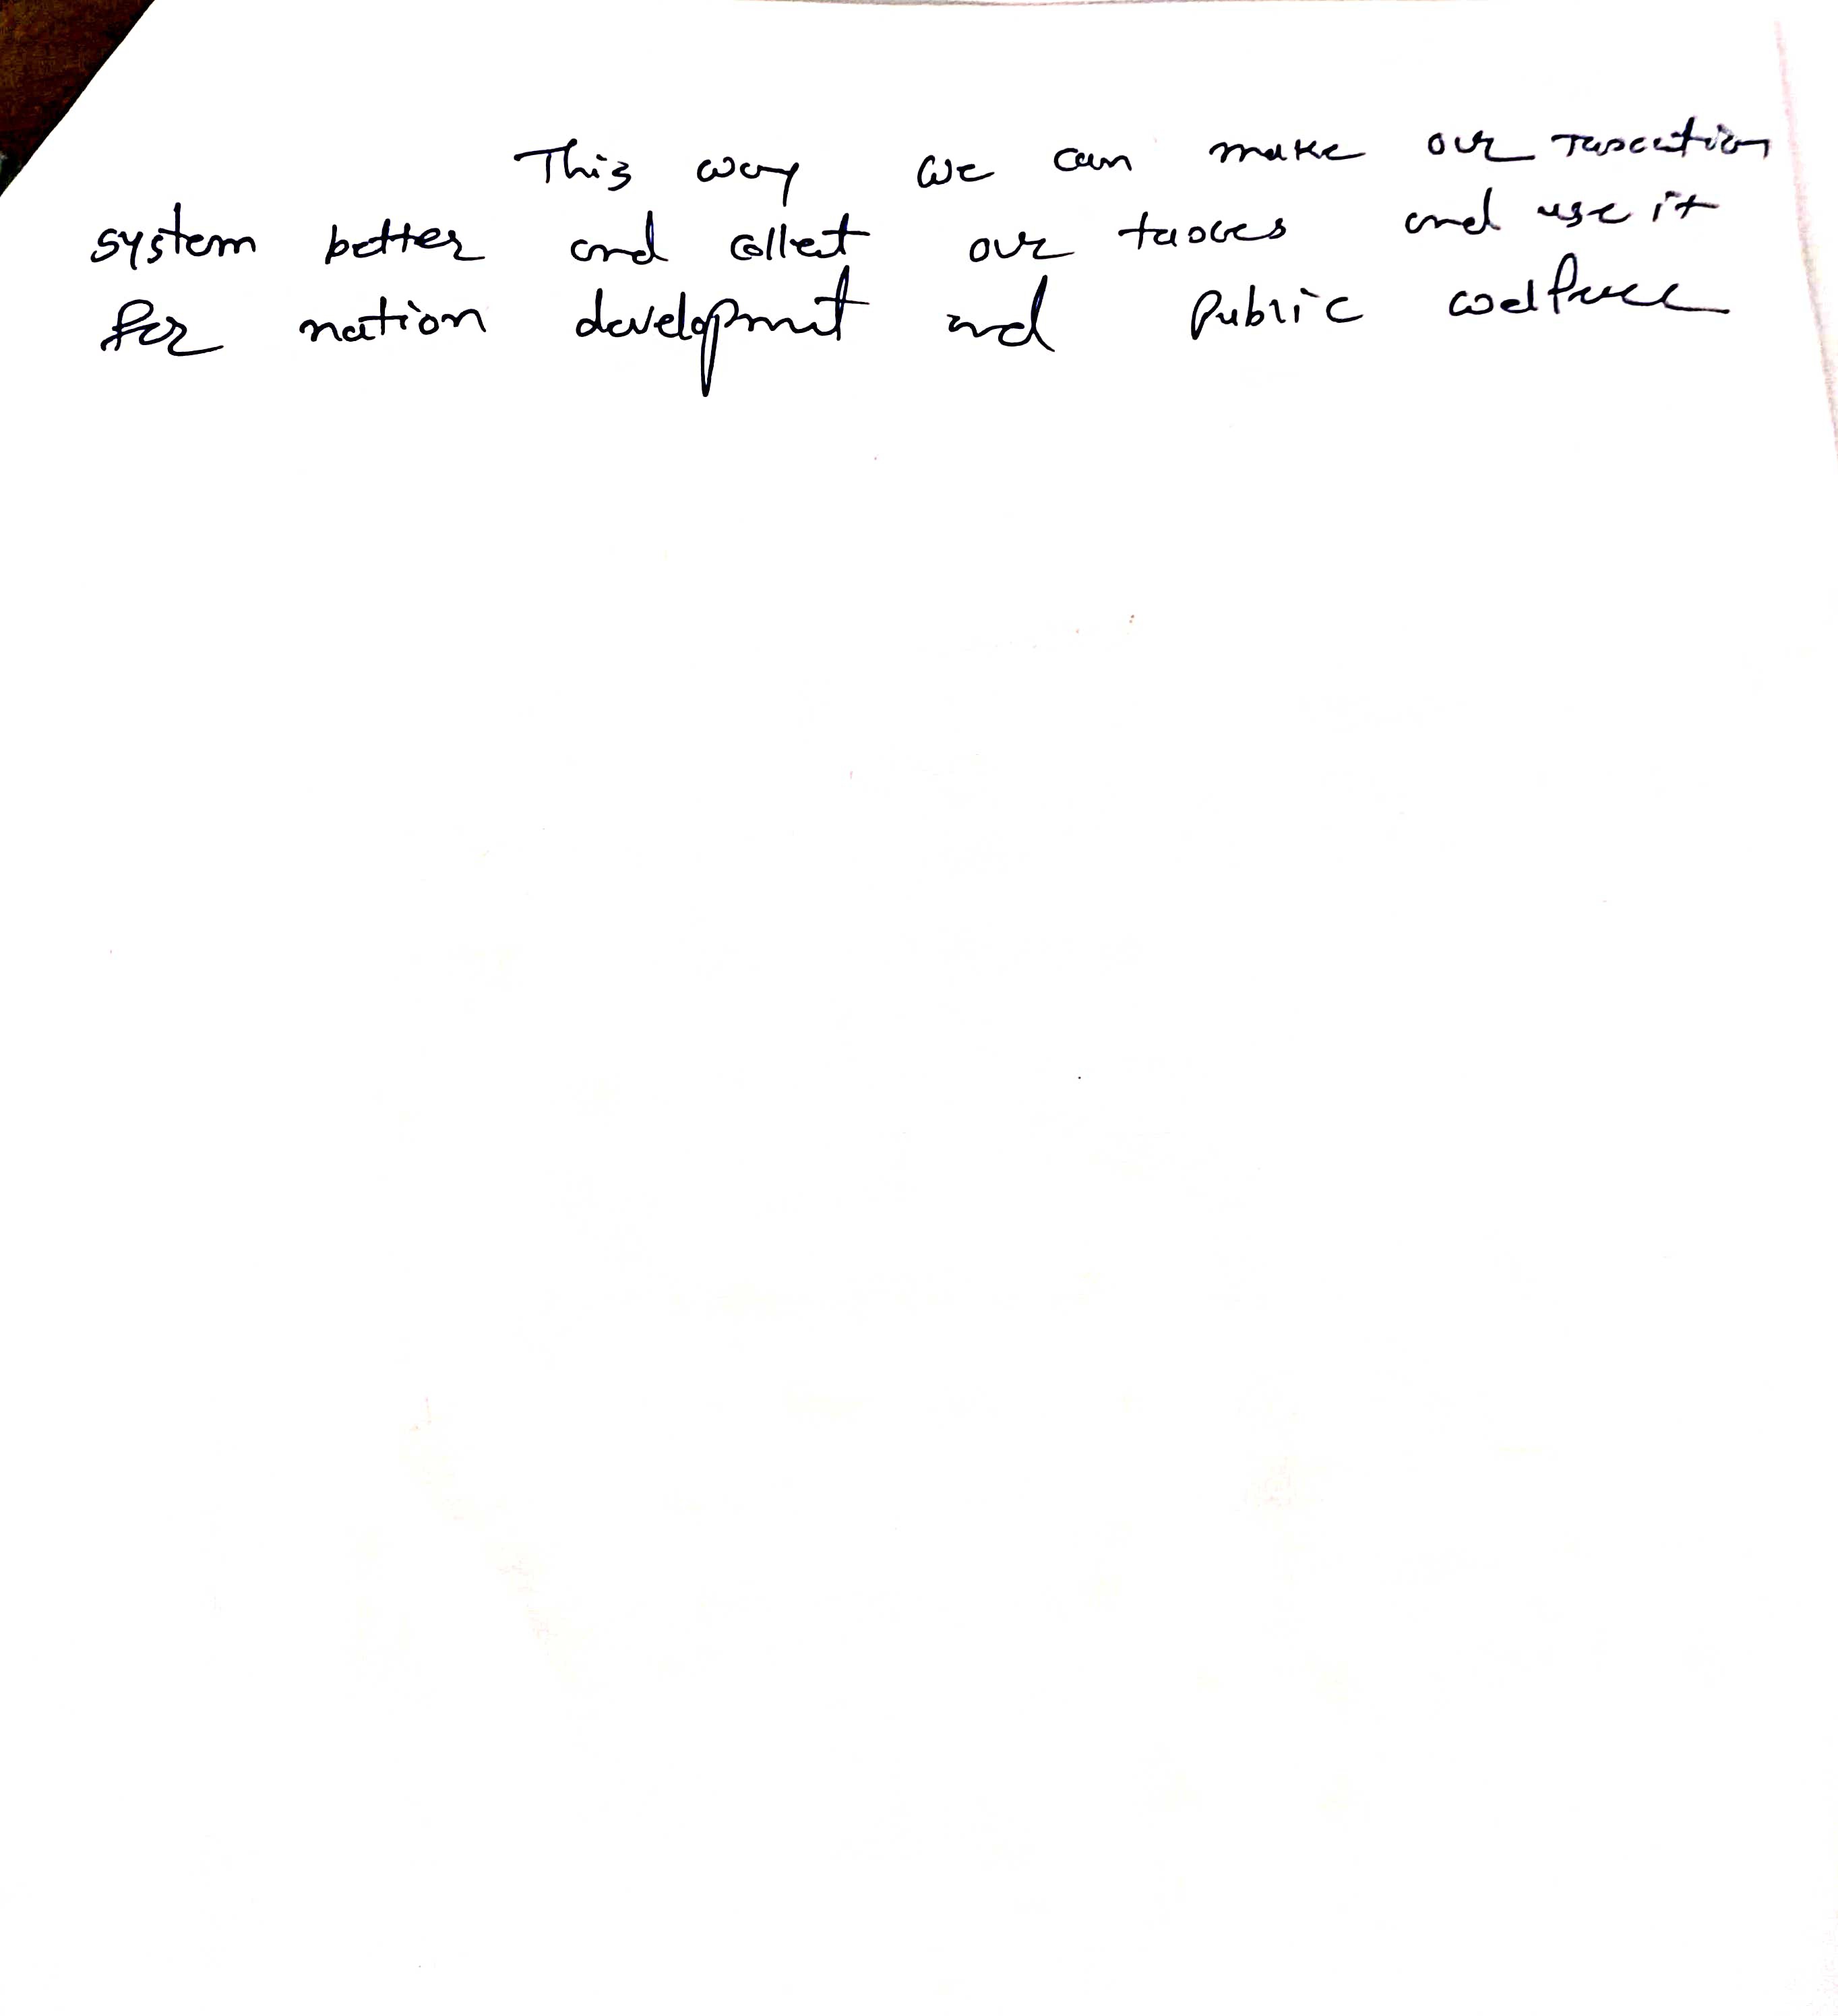 This way we can make our Taxation
system better and collect our taxes and use it
for nation development and Public welfare